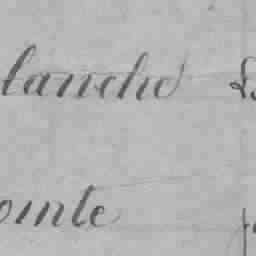 lanche
ointe